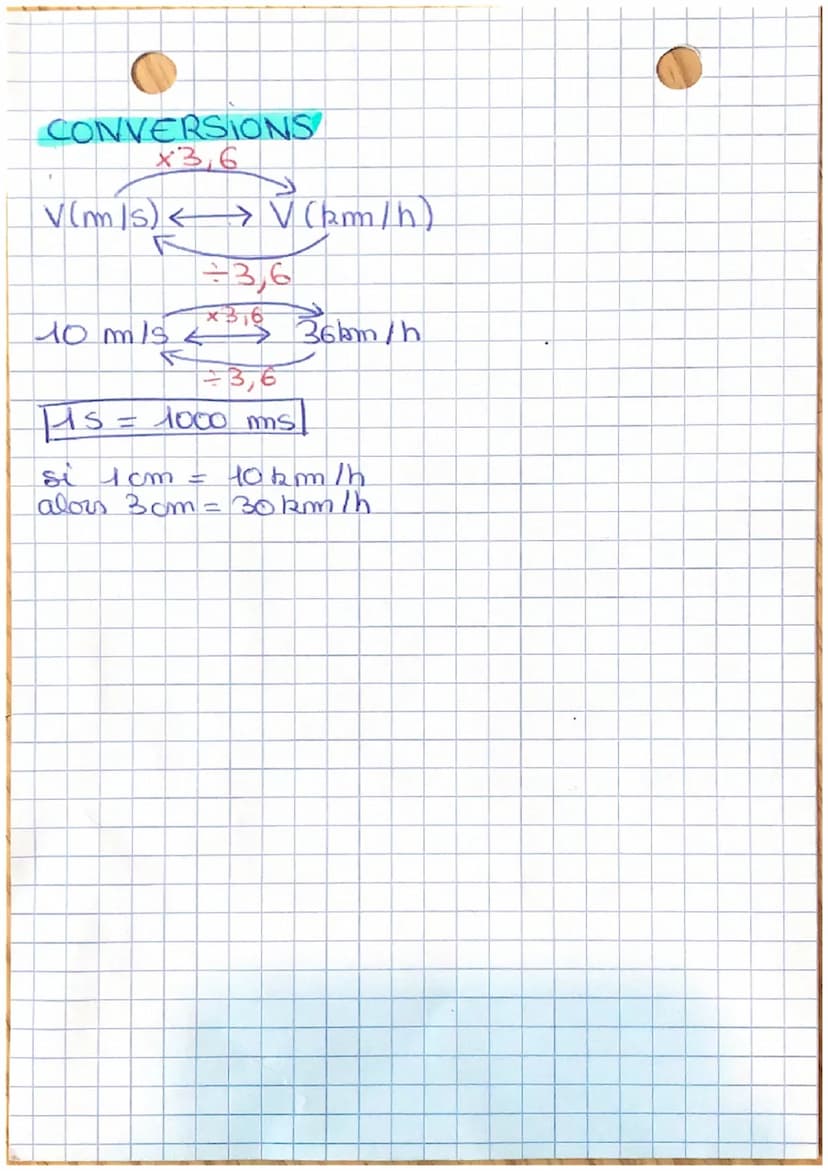 CONVERSIONS
×3,6
V(m/s) ⟷ V(km/h)
÷3,6
×3,6
10 m/s ⟷ 36km/h
÷3,6
1s = 1000 ms
si 1cm = 10km/h
alors 3cm = 30km/h